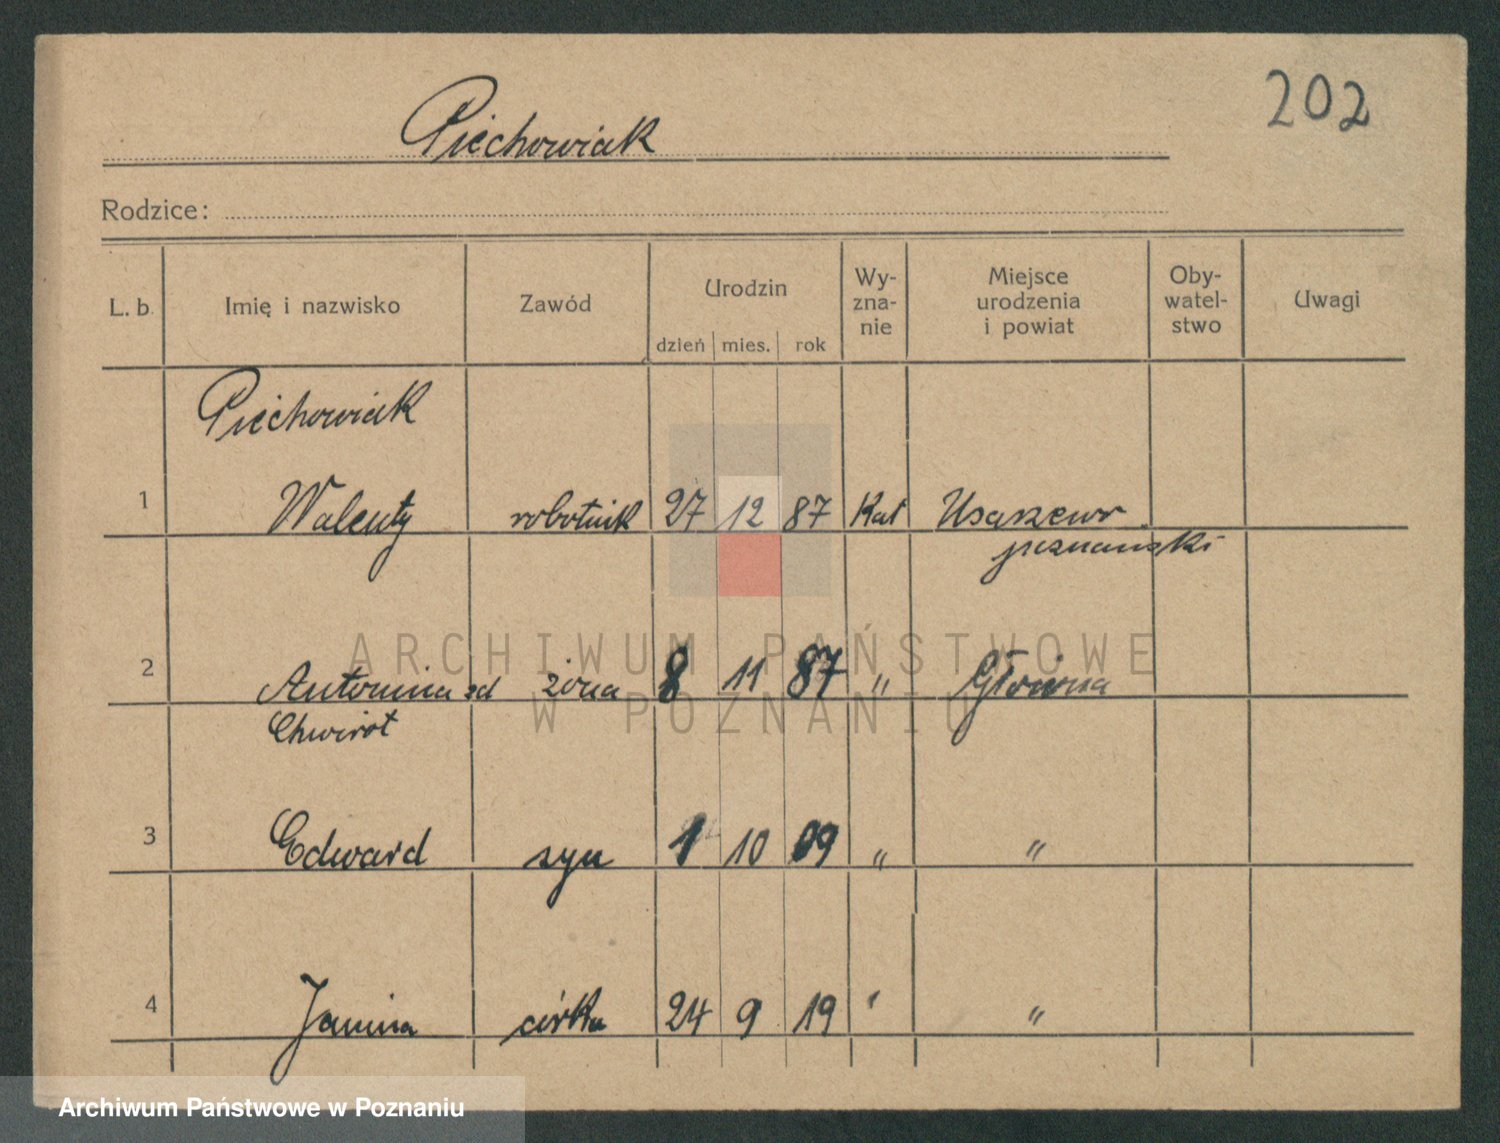 202
Piechowiak
Rodzice:
L. b. Imię i nazwisko Zawód Urodzin dzień mies. rok Wy-zna-nie Miejsce urodzenia i powiat Oby-watel-stwo Uwagi
Piechowiak
1 Walenty robotnik 27 12 87 Kat
poznański
2 Antonina zd żona 8 11 87 " Główna
Chwirot
3 Edward syn 1 10 09 " "
4 Janina córka 24 9 19 " "
ARCHIWUM PAŃSTWOWE
W POZNANIU
Archiwum Państwowe w Poznaniu